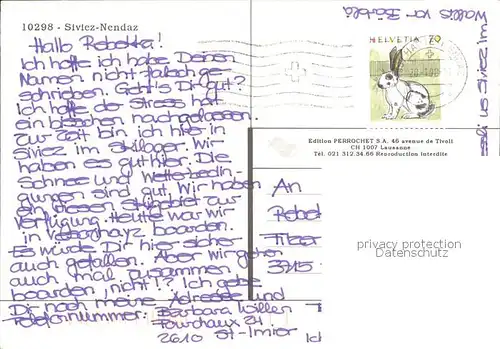 10298 - Siviez-Nendaz
Hallo Rebekka!
Ich hoffe ich habe Deinen
Namen nicht falsch ge-
schrieben. Geht's Dir gut?
Ich hoffe der Stress hat
ein bisschen nachgelassen.
Zur Zeit bin ich hier in
Siviez im Skilager. Wir
haben es gut hier. Die
Schnee und Wetterbedin-
gungen sind gut. Wir haben
ein riesen Skigebiet zur
Verfügung. Heute war wir
in boarden.
Es würde Dir hier sicher
auch gefallen. Aber wir gehen
auch mal zusammen
boarden, nicht!? Ich gebe
Dir noch meine Adresse und
Telefonnummer: Barbara Willen
Fourchaux 24
2610 St-Imier
HELVETIA 70
Edition PERROCHET S.A. 46 avenue de Tivoli
CH 1007 Lausanne
Tél. 021 312.34.66 Reproduction interdite
An
Rebek
3715
privacy protection
Datenschutz
Ich
Wallis von